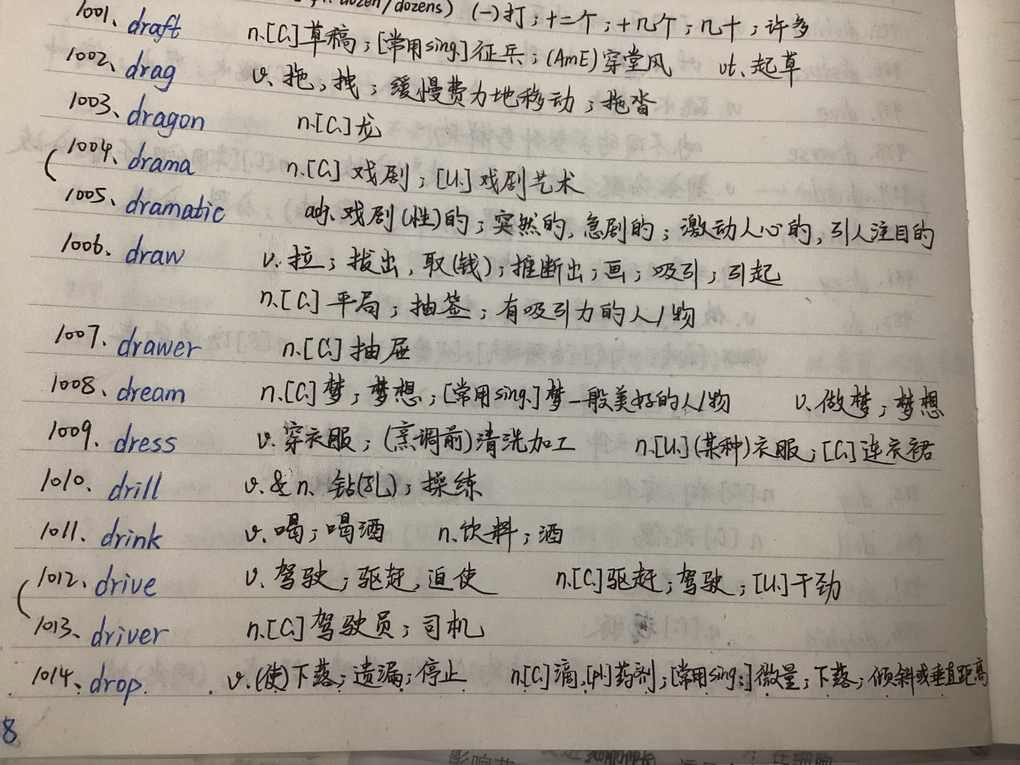 dozen/dozens) (一)打；十二个；十几个；几十；许多
1001、draft n.[C.]草稿；[常用sing.]征兵；(AmE)穿堂风 vt.起草
1002、drag v.拖，拽；缓慢费力地移动；拖沓
1003、dragon n.[C.]龙
1004、drama n.[C.]戏剧；[U.]戏剧艺术
1005、dramatic adj.戏剧(性)的；突然的，急剧的；激动人心的，引人注目的
1006、draw v.拉；拔出，取(钱)；推断出；画；吸引；引起
n.[C.]平局；抽签；有吸引力的人/物
1007、drawer n.[C.]抽屉
1008、dream n.[C.]梦；梦想；[常用sing.]梦一般美好的人/物 v.做梦；梦想
1009、dress v.穿衣服；(烹调前)清洗加工 n.[U.](某种)衣服；[C.]连衣裙
1010、drill v.&n.钻(孔)；操练
1011、drink v.喝；喝酒 n.饮料；酒
1012、drive v.驾驶；驱赶，迫使 n.[C.]驱赶；驾驶；[U.]干劲
1013、driver n.[C.]驾驶员；司机
1014、drop v.(使)下落；遗漏；停止 n.[C.]滴，[pl.]药剂；[常用sing.]微量；下落；倾斜或垂直距离
8